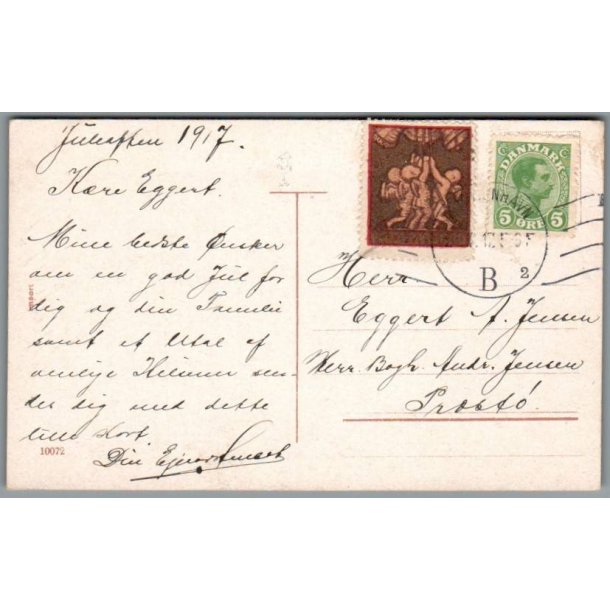 Juleaften 1917.
Kære Eggert.
Mine bedste Ønsker
om en god Jul for
dig og din Familie
samt et Utal af
venlige Hilsener sen-
der dig med dette
lille Kort.
Din Ejnar
10072
DANMARK
5 5
ØRE
KØBENHAVN
B 2
Herr
Eggert A. Jensen
Herr. Bogh. Andr. Jensen
Præstö.